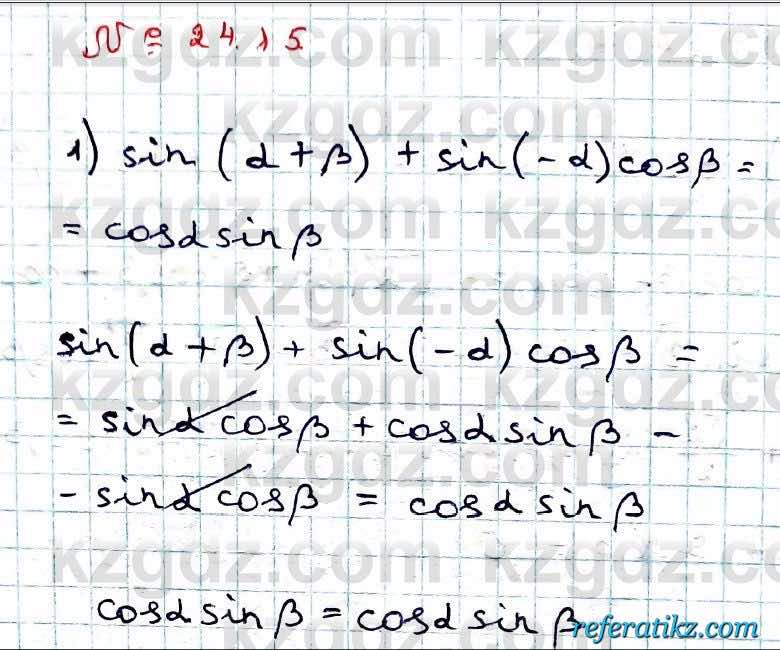 № 24.15
1) sin (α + β) + sin(-α)cosβ =
= cosα sin β
sin(α + β) + sin(-α) cos β =
= sinα cosβ + cosα sin β -
- sinα cosβ = cosα sin β
cosα sin β = cosα sin β
kzgdz.com
referatikz.com